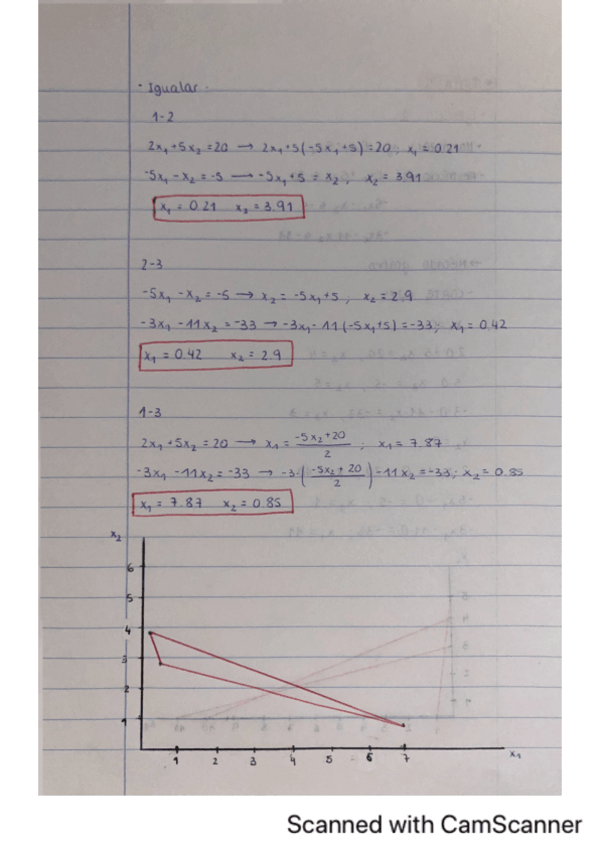 · Igualar.
1-2
2x₁+5x₂=20 → 2x₁+5(-5x₁+5)=20; x₁=0.21
-5x₁-x₂=-5 → -5x₁+5=x₂; x₂=3.91
x₁=0.21 x₂=3.91
2-3
-5x₁-x₂=-5 → x₂=-5x₁+5; x₂=2.9
-3x₁-11x₂=-33 → -3x₁-11(-5x₁+5)=-33; x₁=0.42
x₁=0.42 x₂=2.9
1-3
2x₁+5x₂=20 → x₁=(-5x₂+20)/2; x₁=7.87
-3x₁-11x₂=-33 → -3·((-5x₂+20)/2)-11x₂=-33; x₂=0.85
x₁=7.87 x₂=0.85
x₂
6
5
4
3
2
1
1 2 3 4 5 6 7
x₁
Scanned with CamScanner